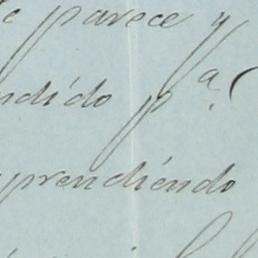 parece y
ndido pª. (
prendiéndo